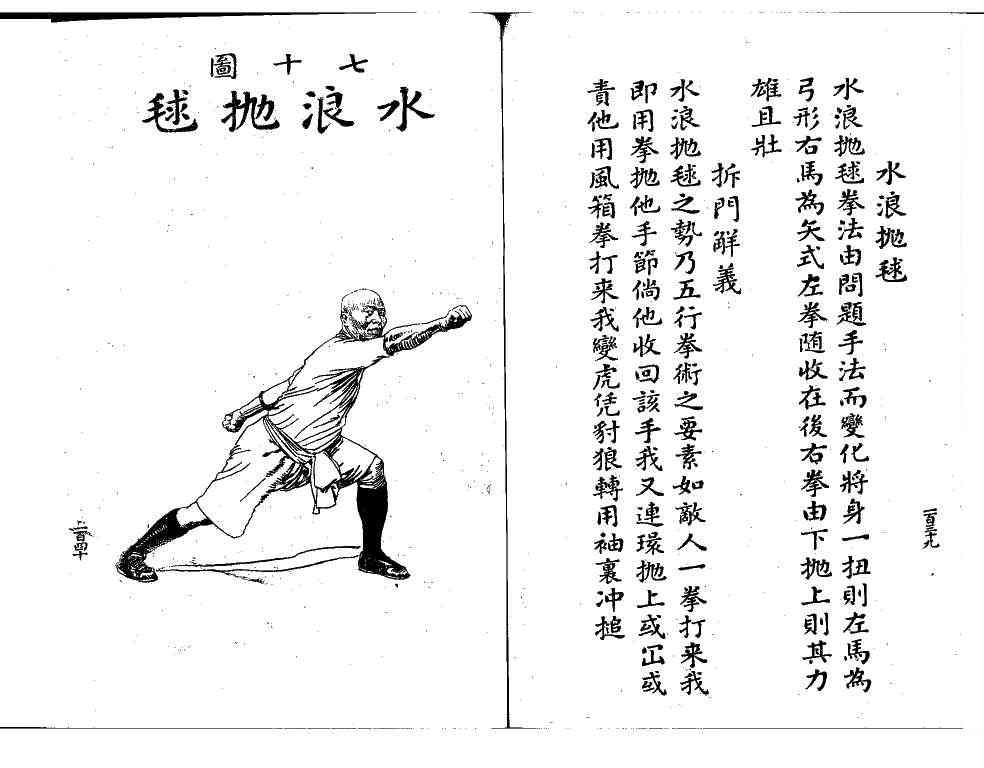 水浪抛毬
水浪抛毬拳法由問題手法而變化將身一扭則左馬為
弓形右馬為矢式左拳随收在後右拳由下抛上則其力
雄且壯
拆門解義
水浪抛毬之勢乃五行拳術之要素如敵人一拳打来我
即用拳抛他手節倘他收回該手我又連環抛上或冚或
責他用風箱拳打来我變虎凭豺狼轉用袖裏冲搥
一百三十九
圖十七
毬抛浪水
一百四十